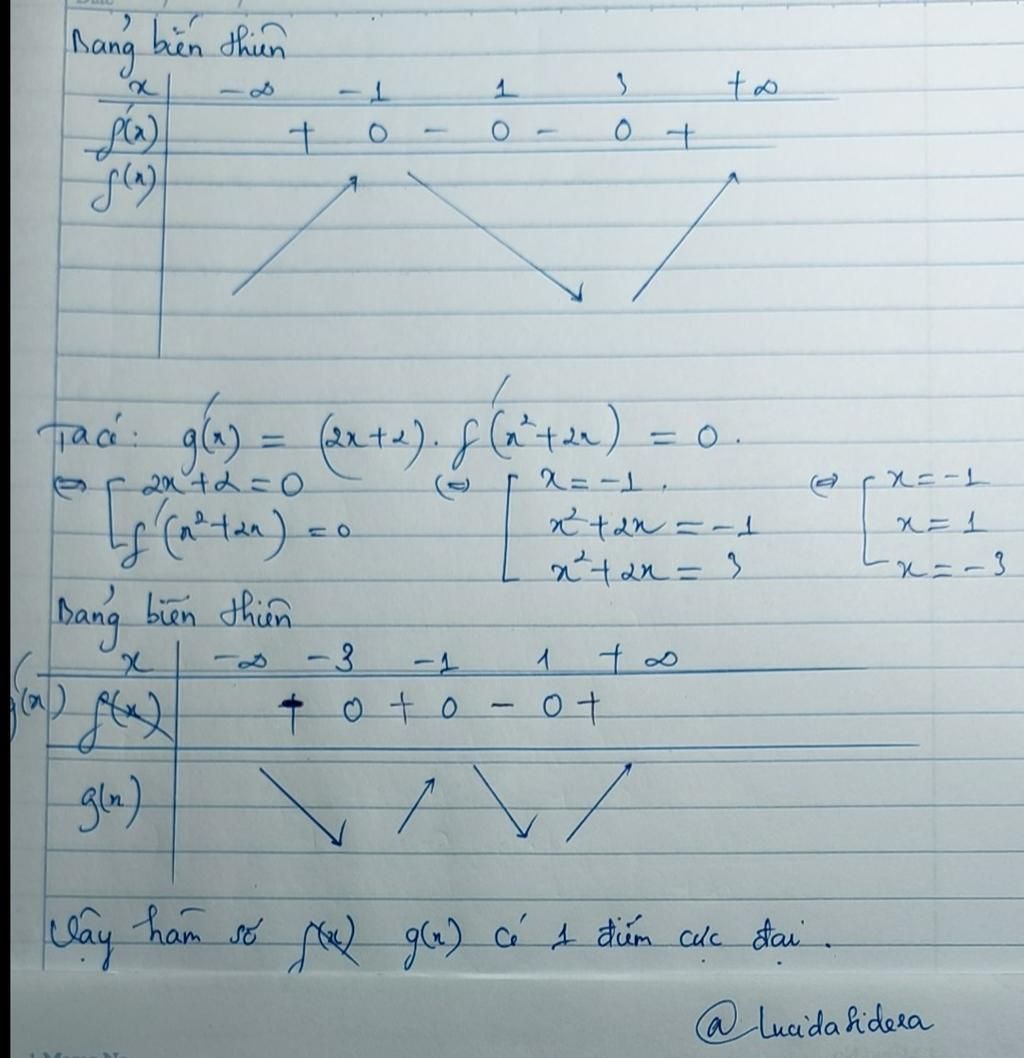 Bảng biến thiên
x -∞ -1 1 3 +∞
f'(x) + 0 - 0 - 0 +
f(x)
Ta có: g'(x) = (2x+2). f'(x²+2x) = 0.
⇔ [ 2x+2=0 (⇔) [ x=-1. (⇔) [ x=-1
f'(x²+2x) = 0 x²+2x = -1 x=1
x²+2x = 3 x=-3
Bảng biến thiên
x -∞ -3 -1 1 +∞
g'(x) f'(x) + 0 + 0 - 0 +
g(x)
Vậy hàm số f(x) g(x) có 1 điểm cực đại.
@lucidasidera